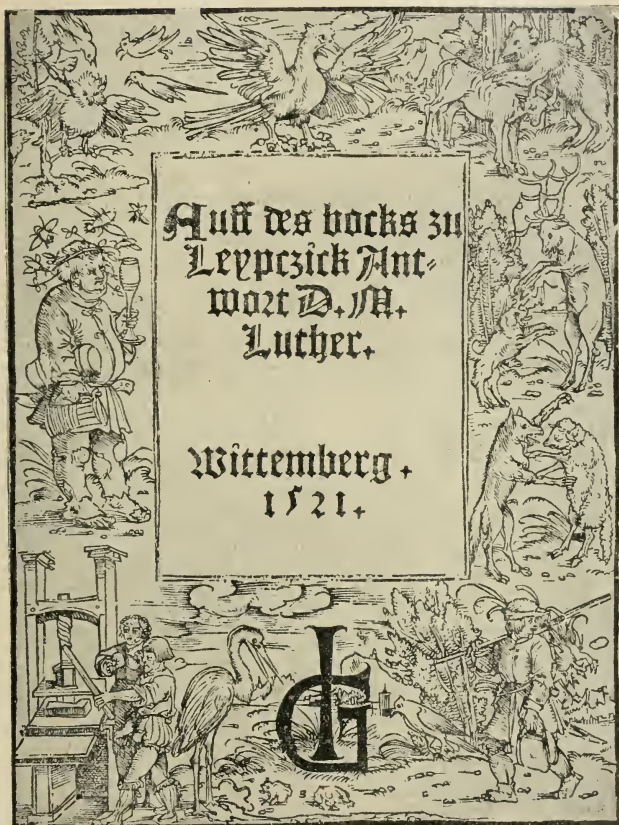 Auff des bocks zu
Leypczick Ant⸗
wort D. M.
Luther.
Wittemberg.
1521.
IG